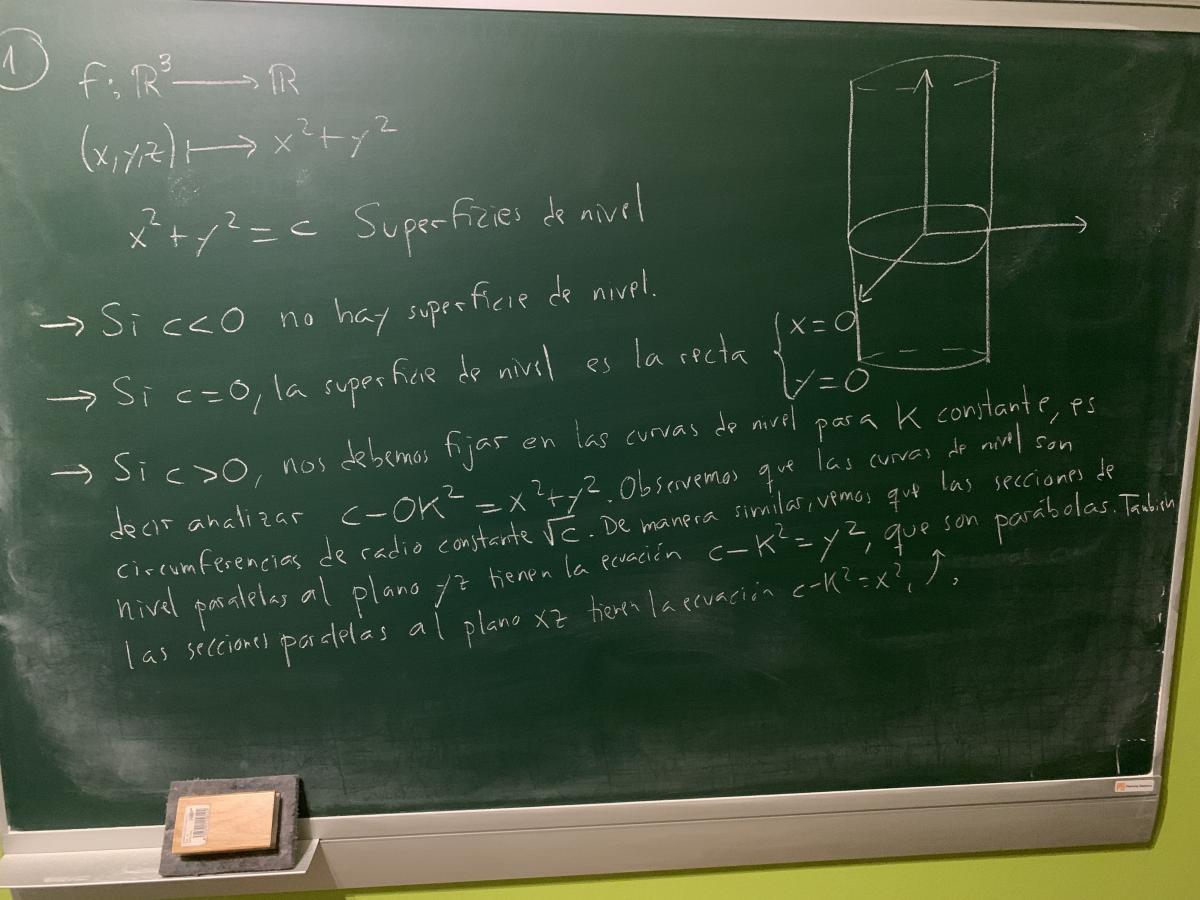 1
f: ℝ³ ⟶ ℝ
(x,y,z) ⟼ x²+y²
x²+y²=c Superfizies de nivel
→ Si c<0 no hay superficie de nivel.
→ Si c=0, la superficie de nivel es la recta { x=0
y=0
→ Si c>0, nos debemos fijar en las curvas de nivel para K constante, es
decir analizar c-0K²=x²+y². Observemos que las curvas de nivel son
circumferencias de radio constante √c. De manera similar, vemos que las secciones de
nivel paralelas al plano yz tienen la ecuación c-K²=y², que son parábolas. También
las secciones paralelas al plano xz tienen la ecuación c-K²=x², ↑.